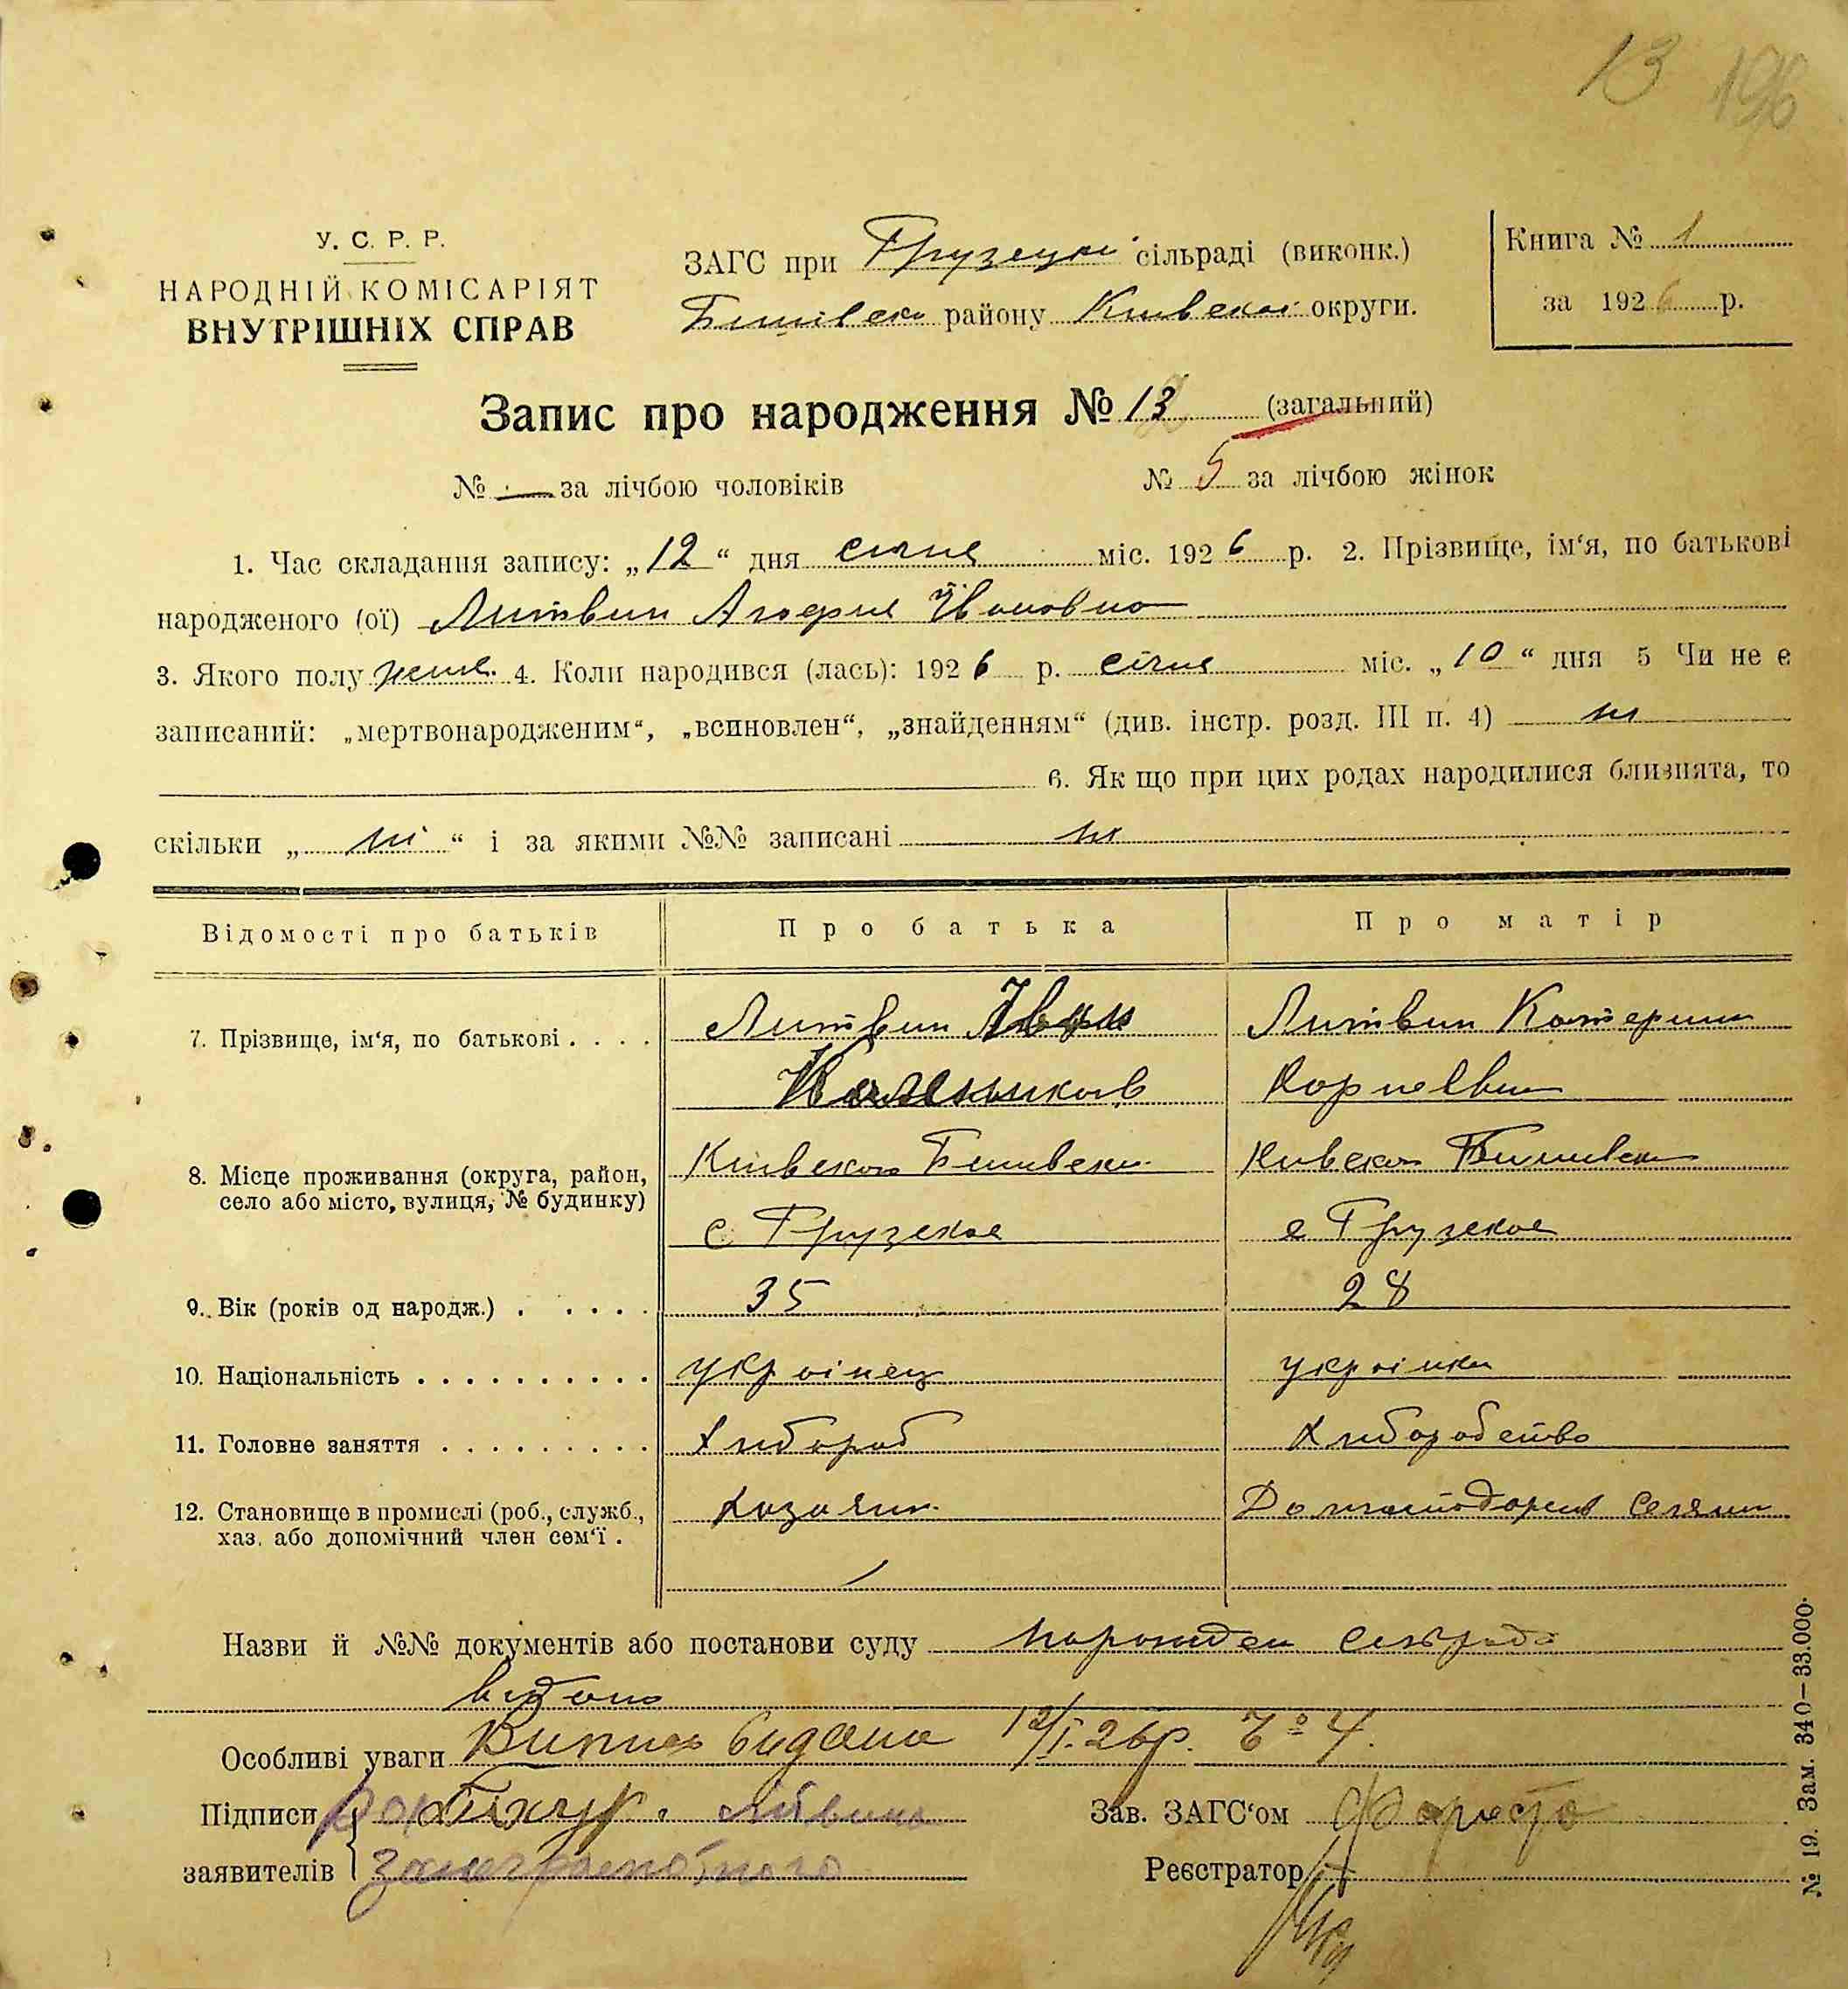 13 196
У. С. Р. Р.
НАРОДНІЙ КОМІСАРІЯТ
ВНУТРІШНІХ СПРАВ
ЗАГС при Грузецкі сільраді (виконк.)
Бишівско району Київскої округи.
Книга № 1
за 1926 р.
Запис про народження № 13 (загальний)
№ — за лічбою чоловіків № 5 за лічбою жінок
1. Час складання запису: „12“ дня січня міс. 1926 р. 2. Прізвище, ім‘я, по батькові
народженого (ої) Литвин Агафія Івановна
3. Якого полу жіно. 4. Коли народився (лась): 1926 р. січня міс. „10“ дня 5 Чи не є
записаний: „мертвонародженим“, „всиновлен“, „знайденням“ (див. інстр. розд. III п. 4) ні
6. Як що при цих родах народилися близнята, то
скільки „ ні “ і за якими №№ записані ні
Відомості про батьків Про батька Про матір
7. Прізвище, ім‘я, по батькові . . . . Литвин Іван Литвин Катерина
Корнеєвна
8. Місце проживання (округа, район, Київскоі Бишивско Київскоі Бишивско
село або місто, вулиця, № будинку)
с Грузское с Грузское
9. Вік (років од народж.) . . . . . 35 28
10. Національність . . . . . . . . . . українец українка
11. Головне заняття . . . . . . . . . Хлібороб Хліборобство
12. Становище в промислі (роб., служб., Хазаяін Селяни
хаз. або допомічний член сем‘ї .
Назви й №№ документів або постанови суду сельрада
видано
Особливі уваги Випись видана 12/I. 26р. № 4.
Підписи Литвин
заявителів за неграмотного
Зав. ЗАГС‘ом
Реєстратор
№ 19. Зам. 340—33.000.